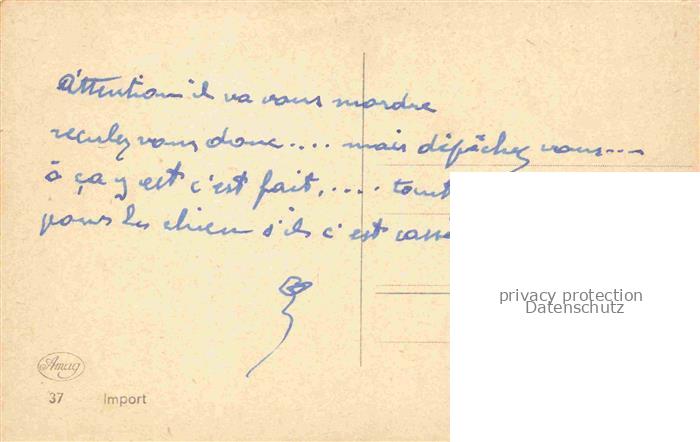 Attention il va vous mordre
reculez vous donc.... mais dépâchez vous....
ô ça y est c'est fait,.... tant
pour les chien s'ils c'est cassé
privacy protection
Datenschutz
Amag
37 Import